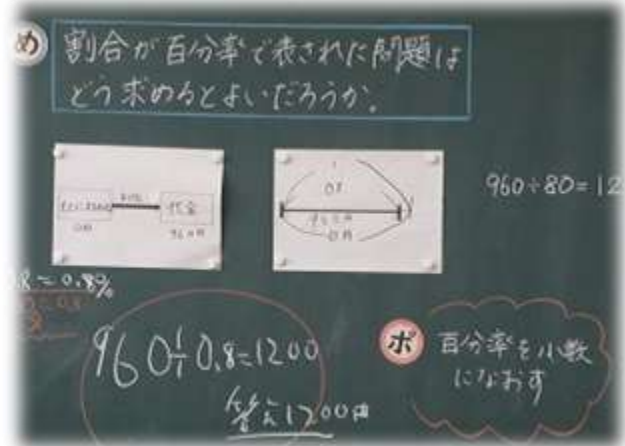 め
割合が百分率で表された問題は
どう求めるとよいだろうか。
代金
960円
□円
1
0.8
960円
□円
960÷80=12
960÷0.8=1200
答え1200円
ポ
百分率を小数
になおす